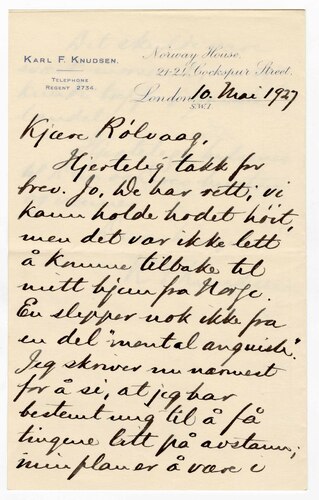 KARL F. KNUDSEN.
TELEPHONE
REGENT 2734.
Norway House,
21-24, Cockspur Street,
London, 10. Mai 1927
S.W.1.
Kjære Rölvaag,
Hjertelig takk for
brev. Jo, De har rett; vi
kann holde hodet höit,
men det var ikke lett
å komme tilbake til
mitt hjem fra Norge.
En slipper nok ikke fra
en del "mental anguish".
Jeg skriver nu nærmest
for å si, at jeg har
bestemt mig til å få
tingene litt på avstann;
min plan er å være i